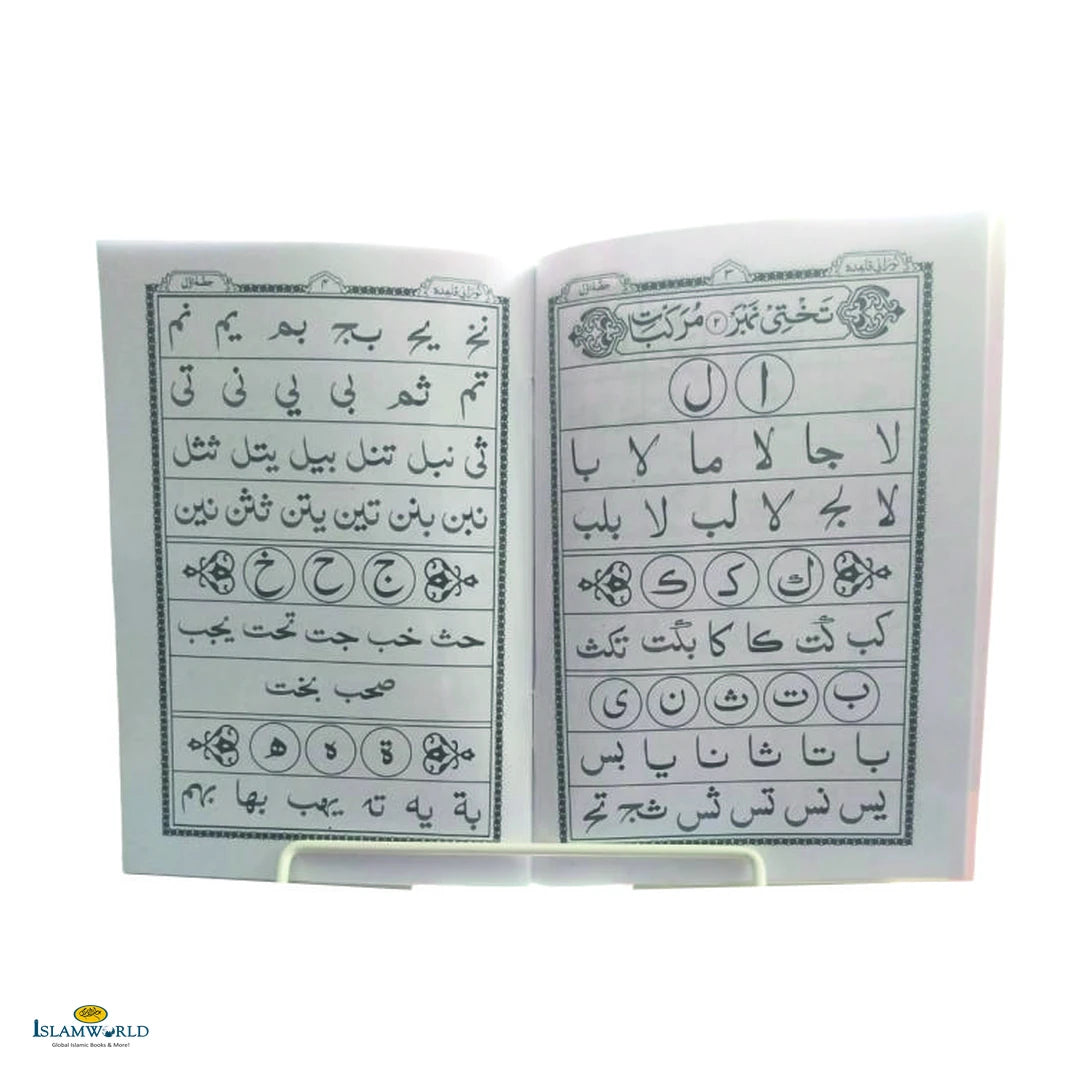 نورانی قاعدہ ۳ حصہ اول
تَخْتِیْ نمبر ۲ مُرَکَّبَت
ا ل
لا جا لا ما لا با
لا لج لا لب لا بلب
ك ک ڪ
کب کت کا کا بکت تکث
ب ت ث ن ی
با تا ثا نا یا بس
یس نس تس ثس شج تح
نورانی قاعدہ ۴ حصہ اول
نخ یح بج بم یم نم
تم ثم بی یی نی تی
ثی نبل تنل بیل یتل ثثل
نبن بنن تین یتن ثثن نین
ج ح خ
حث خب جت تحت یجب
صحب بخت
ة ه ھ
بة یه بها
ISLAMWORLD
Global Islamic Books & More!